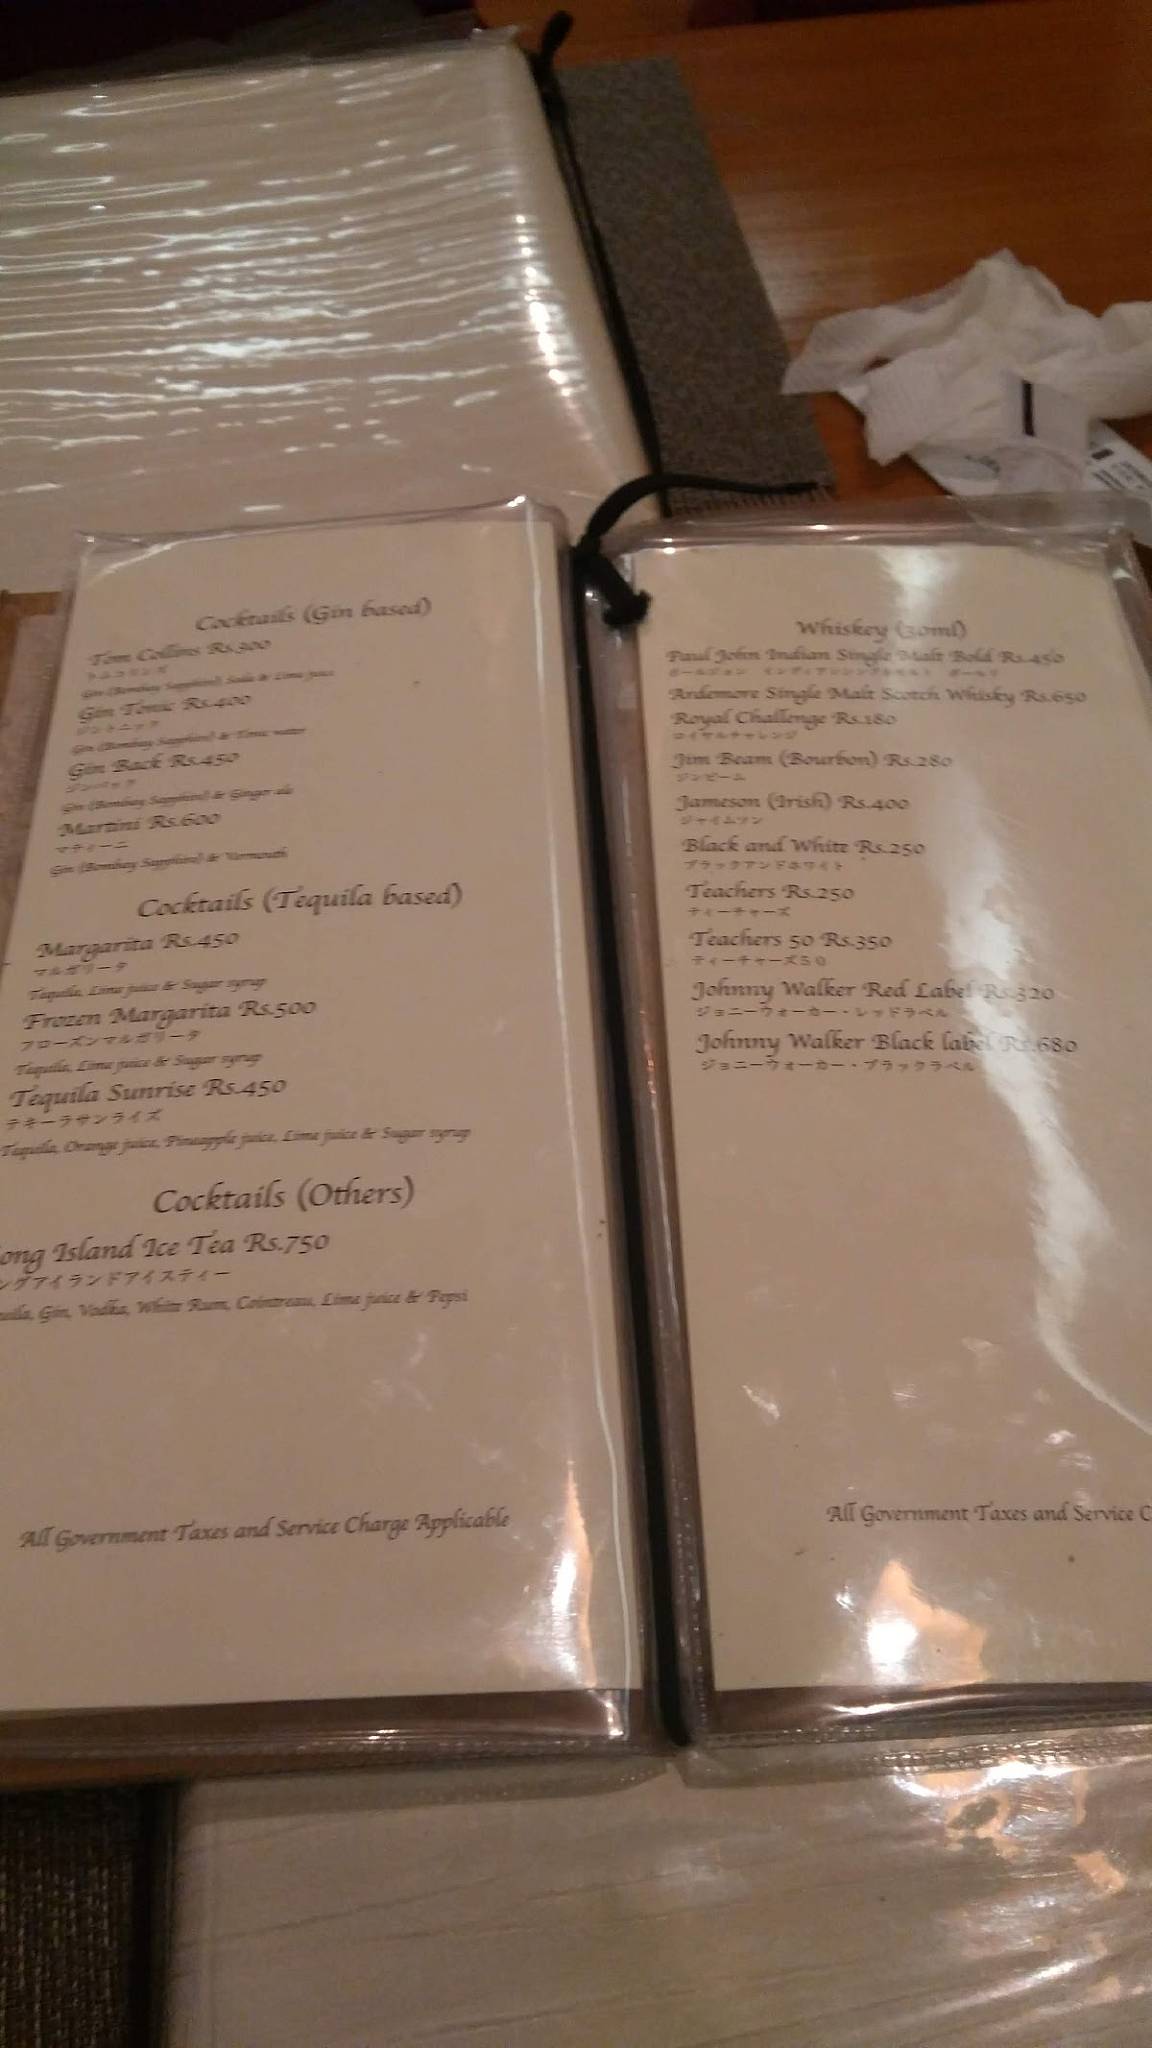 Cocktails (Gin based)
Tom Collins Rs.300
トムコリンズ
Gin (Bombay Sapphire) Soda & Lime juice
Gin Tonic Rs.400
ジントニック
Gin (Bombay Sapphire) & Tonic water
Gin Back Rs.450
ジンバック
Gin (Bombay Sapphire) & Ginger ale
Martini Rs.600
マティーニ
Gin (Bombay Sapphire) & Vermouth
Cocktails (Tequila based)
Margarita Rs.450
マルガリータ
Tequila, Lime juice & Sugar syrup
Frozen Margarita Rs.500
フローズンマルガリータ
Tequila, Lime juice & Sugar syrup
Tequila Sunrise Rs.450
テキーラサンライズ
Tequila, Orange juice, Pineapple juice, Lime juice & Sugar syrup
Cocktails (Others)
ong Island Ice Tea Rs.750
ングアイランドアイスティー
uila, Gin, Vodka, White Rum, Cointreau, Lime juice & Pepsi
All Government Taxes and Service Charge Applicable
Whiskey (30ml)
Paul John Indian Single Malt Bold Rs.450
Ardemore Single Malt Scotch Whisky Rs.650
Royal Challenge Rs.180
ロイヤルチャレンジ
Jim Beam (Bourbon) Rs.280
ジンビーム
Jameson (Irish) Rs.400
ジャイムソン
Black and White Rs.250
ブラックアンドホワイト
Teachers Rs.250
ティーチャーズ
Teachers 50 Rs.350
ティーチャーズ５０
Johnny Walker Red Label Rs.320
ジョニーウォーカー・レッドラベル
Johnny Walker Black label Rs.680
ジョニーウォーカー・ブラックラベル
All Government Taxes and Service C